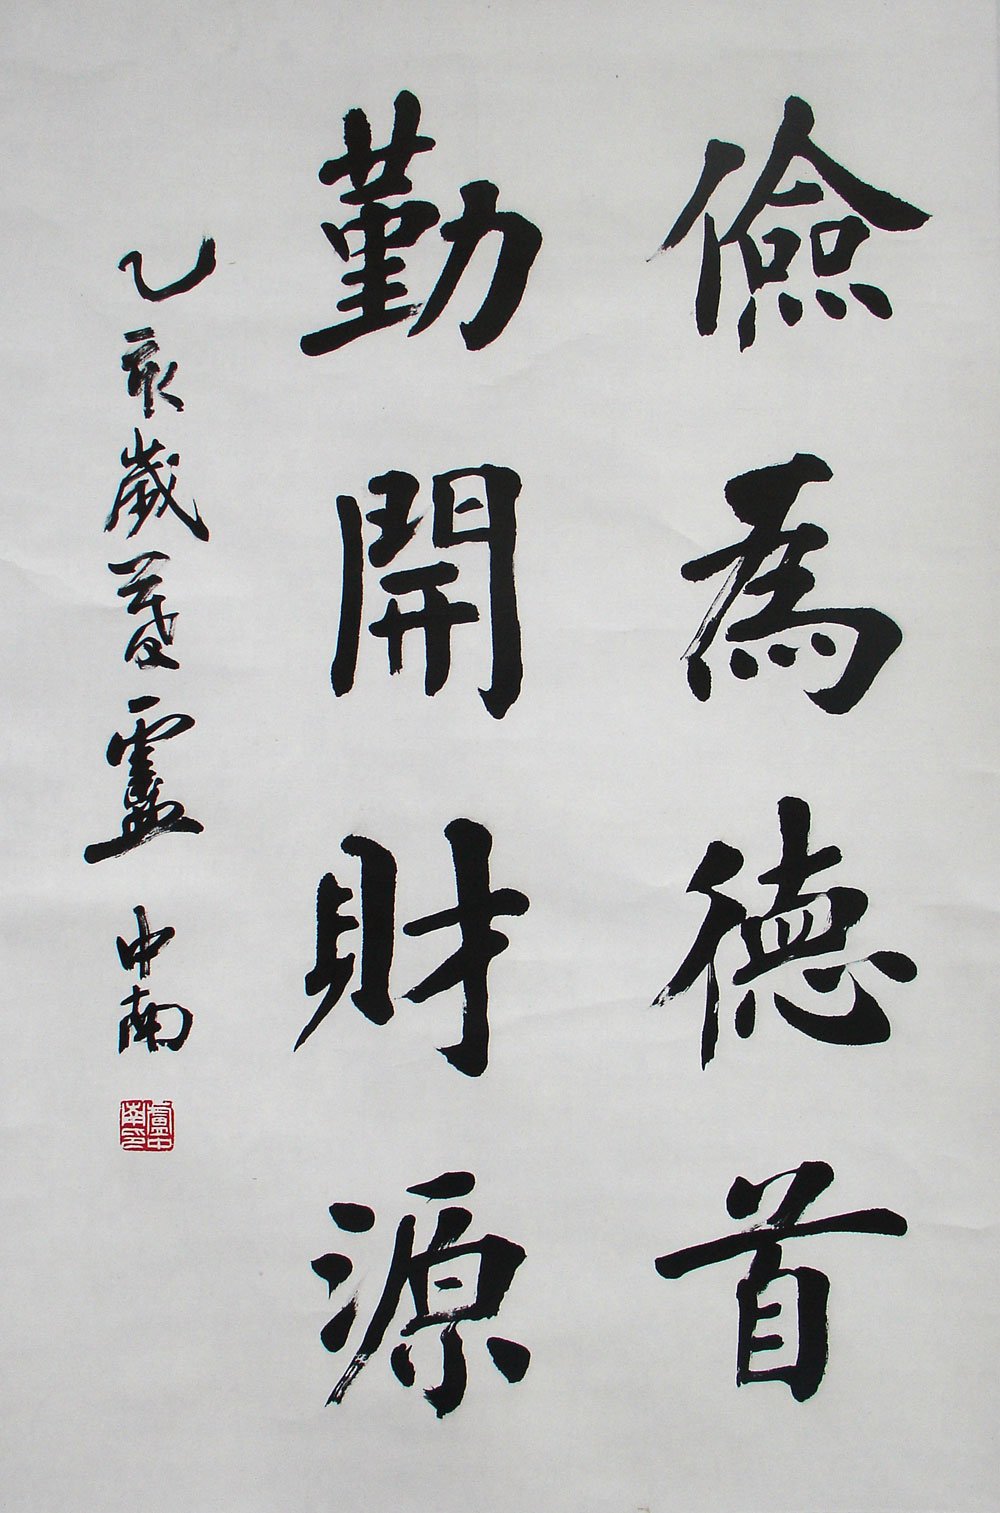 儉為德首
勤開財源
乙亥歲暮盧中南
盧中南印